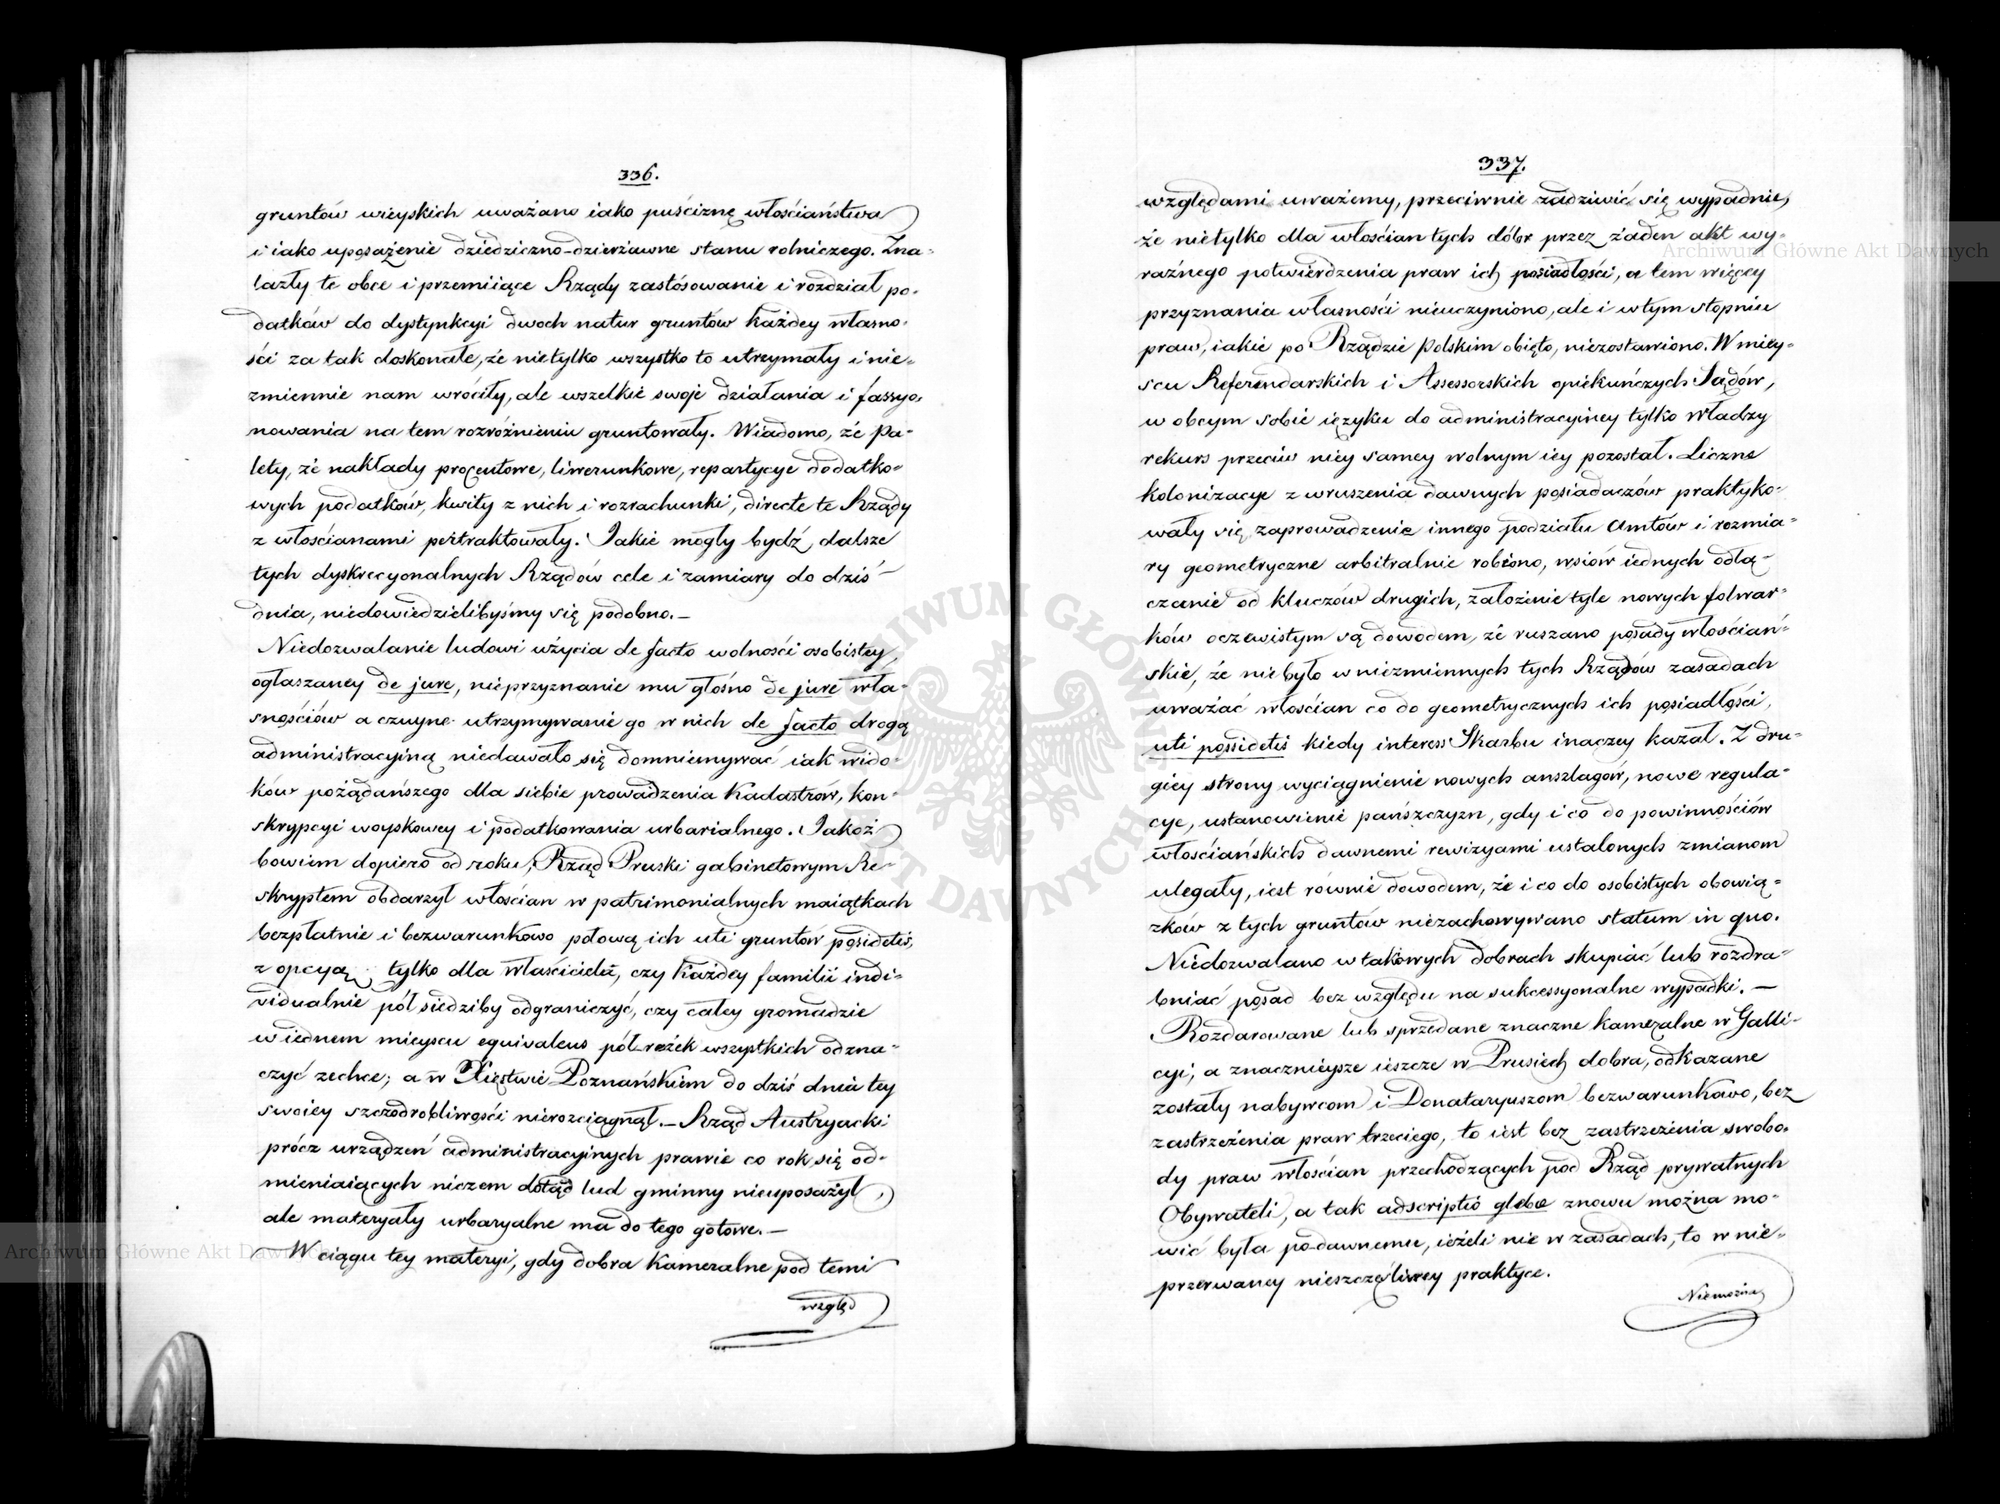 336.
gruntów wieyskich uważano iako puściznę włościaństwa
i iako uposażenie dziedziczno-dzierżawne stanu rolniczego. Zna-
lazły te obce i przemiiące Rządy zastósowanie i rozdział po-
datków do dystynkcyi dwoch natur gruntów każdey własno-
ści za tak doskonałe, że nietylko wszystko to utrzymały i nie-
zmiennie nam wróciły, ale wszelkie swoje działania i fassyo-
nowania na tem rozróżnieniu gruntowały. Wiadomo, że Pa-
lety, że nakłady procentowe, liwerunkowe, repartycye dodatko-
wych podatków, kwity z nich i rozrachunki, directe te Rządy
z włościanami pertraktowały. Jakie mogły bydź dalsze
tych dyskrecyonalnych Rządów cele i zamiary do dziś
dnia, niedowiedzielibyśmy się podobno.—
Niedozwalanie ludowi użycia de facto wolności osobistey,
ogłaszaney de jure, nieprzyznanie mu głośno de jure wła-
snościów a czuyne utrzymywanie go w nich de facto drogą
administracyiną niedawało się domniemywać iak wido-
ków pożądańszego dla siebie prowadzenia Kadastrów, kon-
skrypcyi woyskowey i podatkowania urbarialnego. Jakoż
bowiem dopiero od roku, Rząd Pruski gabinetowym Re-
skryptem obdarzył włościan w patrimonialnych maiątkach
bezpłatnie i bezwarunkowo połową ich uti gruntów possidetis,
z opcyą tylko dla właściciela, czy każdey familii indi-
vidualnie pół siedziby odgraniczyć, czy całey gromadzie
w iednem mieyscu equivalens pół-ról wszystkich odzna-
czyć zechce; a w Xięstwie Poznańskiem do dziś dnia tey
swoiey szczodrobliwości nierozciągnął.— Rząd Austryacki
prócz urządzeń administracyinych prawie co rok się od-
mieniaiących niczem dotąd lud gminny nieuposażył,
ale materyały urbaryalne ma do tego gotowe.—
W ciągu tey materyi, gdy dobra Kameralne pod temi
względ
337.
względami uważemy, przeciwnie zadziwić się wypadnie,
że nietylko dla włościan tych dóbr przez żaden akt wy-
raźnego potwierdzenia praw ich posiadłości, a tem więcey
przyznania własności nieuczyniono, ale i w tym stopniu
praw, iakie po Rządzie Polskim obięto, niezostawiono. W miey-
scu Referendarskich i Assessorskich opiekuńczych Sądów,
w obcym sobie ięzyku do administracyiney tylko Władzy
rekurs przeciw niey samey wolnym iey pozostał. Liczne
kolonizacye z wruszenia dawnych posiadaczów praktyko-
wały się, zaprowadzenie innego podziału Amtów i rozmia-
ry geometryczne arbitralnie robiono, wsiów iednych odłą-
czanie od kluczów drugich, założenie tyle nowych folwar-
ków oczewistym są dowodem, że ruszano posady włościań-
skie, że niebyło w niezmiennych tych Rządów zasadach
uważać włościan co do geometrycznych ich posiadłości,
uti possidetis kiedy interess Skarbu inaczey kazał. Z dru-
giey strony wyciągnienie nowych anszlagów, nowe regula-
cye, ustanowienie pańszczyzn, gdy i co do powinnościów
włościańskich dawnemi rewizyami ustalonych zmianom
ulegały, iest równie dowodem, że i co do osobistych obowią-
zków z tych gruntów niezachowywano statum in quo.
Niedozwalano w takowych dobrach skupiać lub rozdra-
bniać posad bez względu na sukcessyonalne wypadki.—
Rozdarowane lub sprzedane znaczne kameralne w Galli-
cyi, a znacznieysze ieszcze w Prusiech dobra, odkazane
zostały nabywcom i Donataryuszom bezwarunkowo, bez
zastrzeżenia praw trzeciego, to iest bez zastrzeżenia swobo-
dy praw włościan przechodzących pod Rząd prywatnych
Obywateli, a tak adscriptio glebae znowu można mo-
wić była podawnemu, ieżeli nie w zasadach, to w nie-
przerwaney nieszczęśliwey praktyce.
Niemożna
Archiwum Główne Akt Dawnych
Archiwum Główne Akt Dawnych
ARCHIWUM GŁÓWNE AKT DAWNYCH